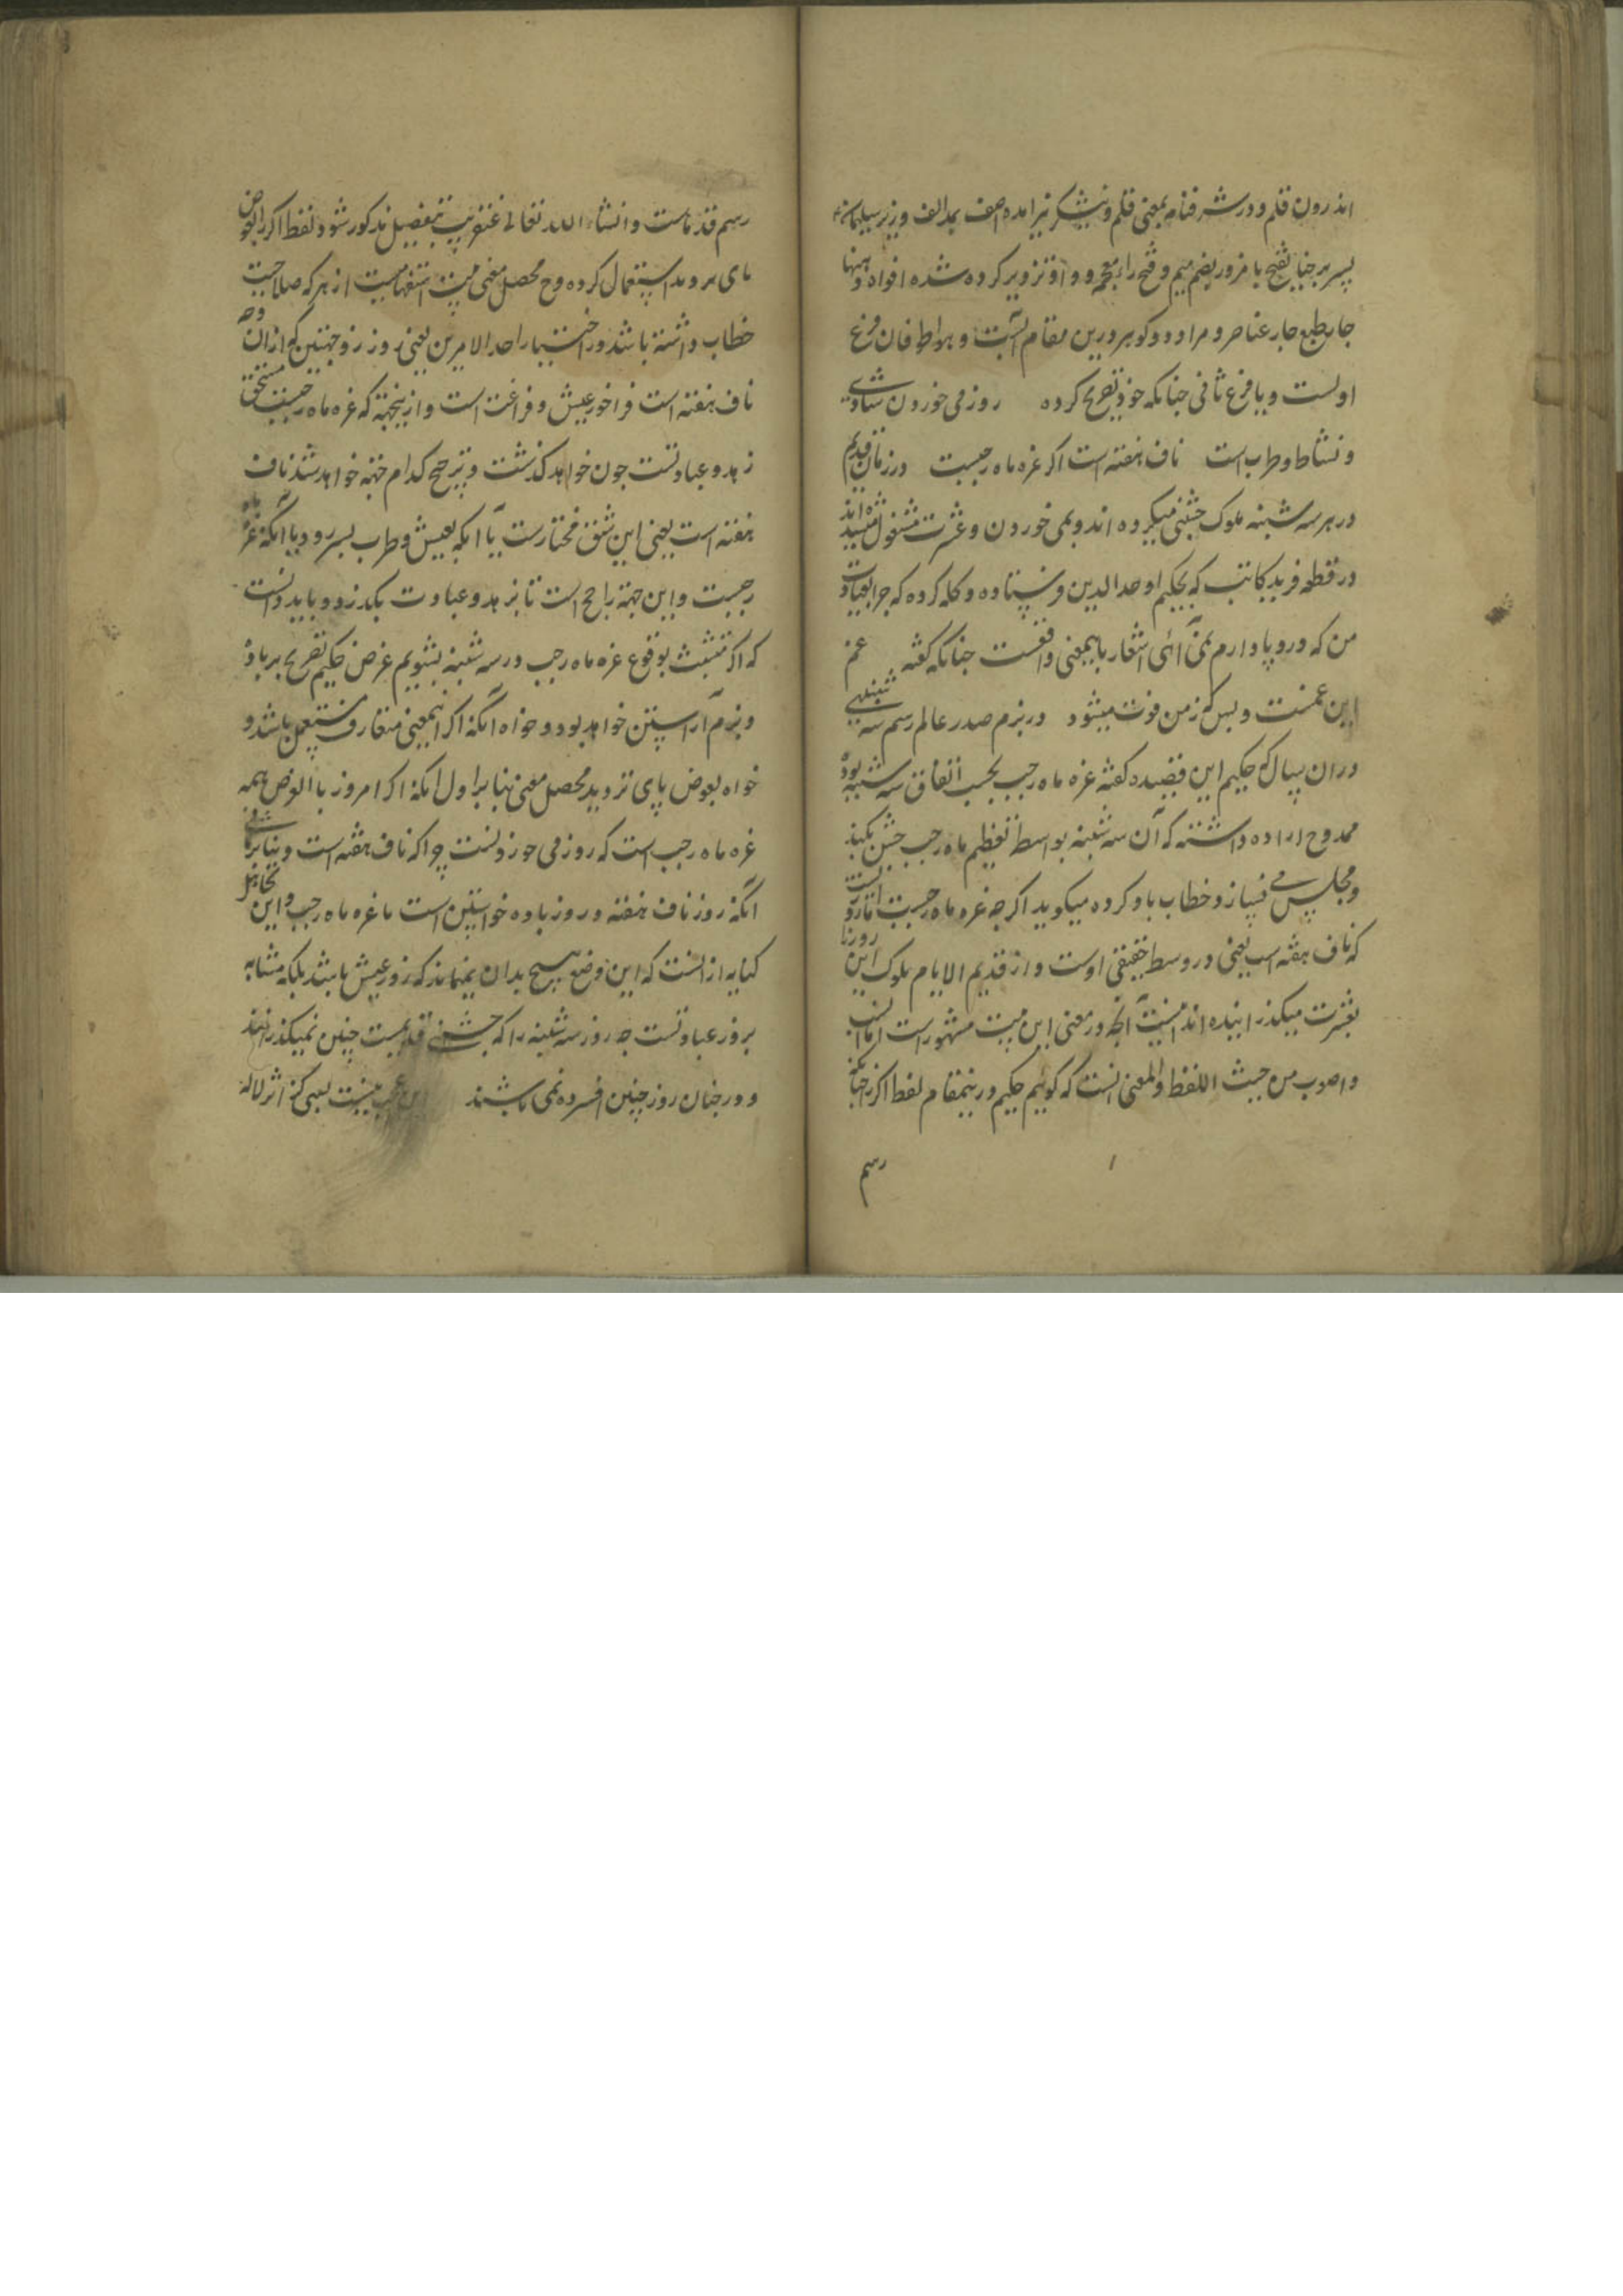 اندرون قلم و در شرفنامه بمعنی قلم و نیشکر نیز آمده آصف بمد الف وزیر سلیمان
پسر برخیا بفتح با مزور بضم میم و فتح زاء معجمه و واو تزویر کرده شده افواه دهنها
چار طبع چار عناصر و مراد دو گوهر درین مقام آبست و هوا طوفان فرع
اولست و با فرع ثانی چنانکه خود تصریح کرده روز می خوردن شادی
و نشاط و طرب است ناف هفته است اگر غره ماه رجبست در زمان قدیم
در هر سه شنبه ملوک جشنی میکرده اند و بمی خوردن و عشرت مشغول میشده اند
در قطعه فرید کاتب که بحکیم اوحد الدین فرستاده و گله کرده که چرا بعیادت
من که درد پا دارم نمی آئی اشعار باینمعنی واقعست چنانکه گفته غم
این غمست و بس که ز من فوت میشود در بزم صدر عالم رسم سه شنبهی
در آن سال که حکیم این قصیده گفته غره ماه رجب بحسب اتفاق سه شنبه بوده
ممدوح اراده داشته که آن سه شنبه بواسطه تعظیم ماه رجب جشن نکند
و مجلس می نسازد خطاب باو کرده میگوید اگر چه غره ماه رجبست اما روزیست
که ناف هفته است یعنی در وسط حقیقی اوست و از قدیم الایام ملوک این روز را
بعشرت میگذرانیده اند اینست آنچه در معنی این بیت مشهور است اما انسب
و اصوب من حیث اللفظ والمعنی آنست که گوئیم حکیم درینمقام لفظ اگر را چنانکه
رسم
رسم قدماست و انشاء الله تعالی عنقریب بتفصیل مذکور شود لفظ اگر را بعوض
یای تردید استعمال کرده و محصل معنی بیت استفهامیست از هر که صلاحیت
خطاب داشته باشد در اختیار احد الامرین یعنی روز ذو جهتین که از آن وجه
ناف هفته است فراخور عیش و فراغت است و از اینجهة که غره ماه رجبست مستحق
زهد و عبادتست چون خواهد گذشت و ترجیح کدام جهة خواهد شد ناف
هفته است یعنی این شق مختارست یا آنکه بعیش و طرب بسر رود یا آنکه غره ماه
رجبست و این جهة راجح است تا بزهد و عبادت بگذرد و باید دانست
که اگر متشبث بوقوع غره ماه رجب در سه شنبه بشویم غرض حکیم تصریح بر باده
و بزم آراستن خواهد بود و خواه آنکه اگر بمعنی متعارف مستعمل باشد و
خواه بعوض یای تردید محصل معنی بنابر اول آنکه اگر امروز بالفرض همه
غره ماه رجب است که روز می خوردنست چرا که ناف هفته است و بنابر ثانی
آنکه روز ناف هفته و روز باده خواستن است یا غره ماه رجب و این تجاهل
کنایه از آنست که این وضع هیچ بدان نمیماند که روز عیش باشد بلکه مشابه
بروز عبادتست چه روز سه شنبه را که جشن قدیمست چنین نمیگذرانند
و در چنان روز چنین افسرده نمی باشند این عجب نیست بسی کز اثر لاله